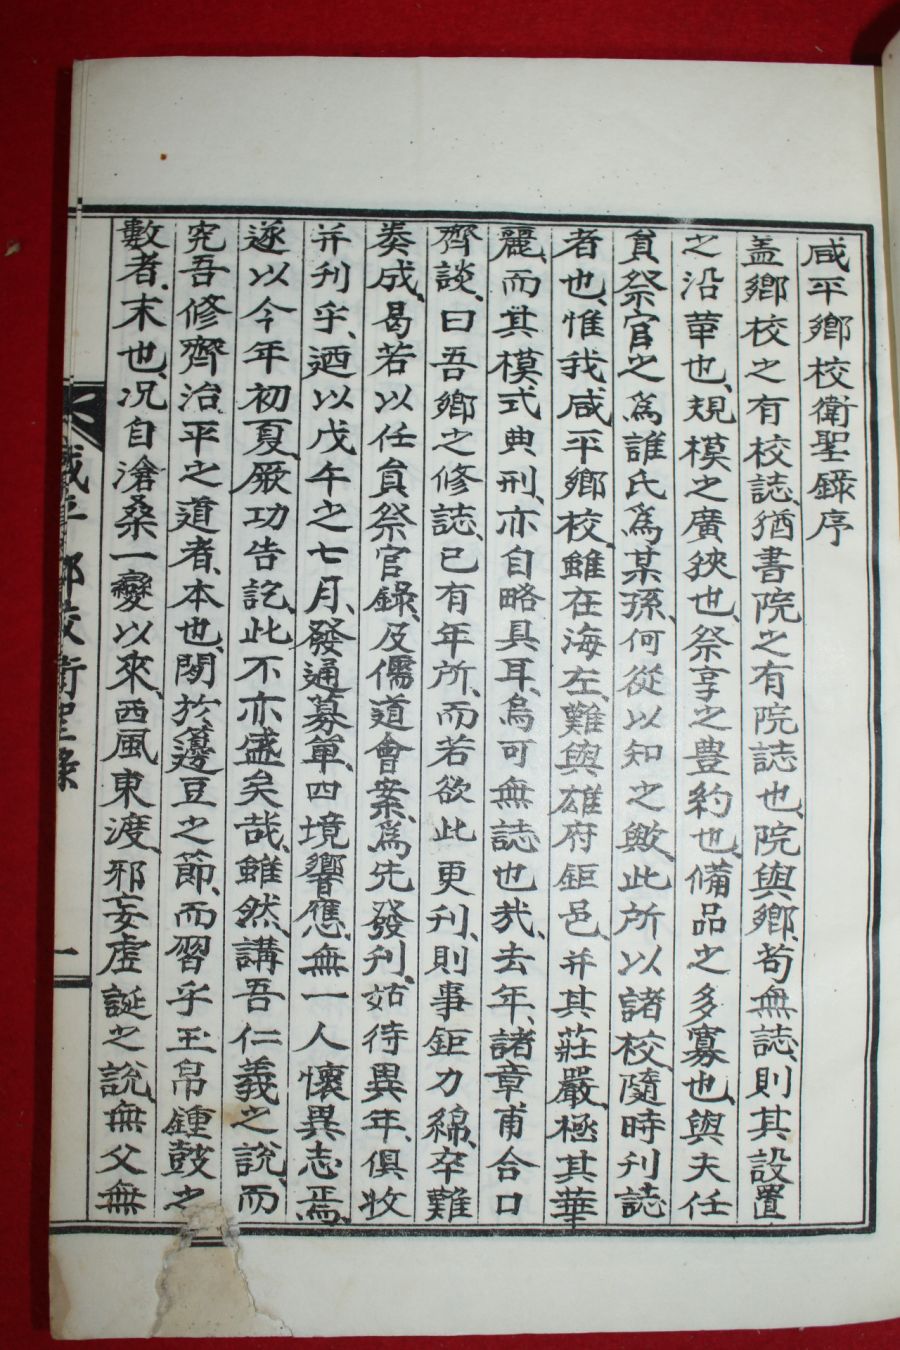 咸平鄉校衛聖錄序
盖鄉校之有校誌、猶書院之有院誌也、院與鄉、苟無誌、則其設置
之沿革也、規模之廣狹也、祭享之豊約也、備品之多寡也、與夫任
員祭官之爲誰氏爲某孫、何從以知之歟、此所以諸校隨時刊誌
者也、惟我咸平鄉校、雖在海左、難與雄府鉅邑、并其莊嚴、極其華
麗、而其模式典刑、亦自略具耳、烏可無誌也哉、去年、諸章甫合口
齊談、曰吾鄉之修誌、已有年所、而若欲此更刊、則事鉅力綿、卒難
奏成、曷若以任員祭官錄、及儒道會案、爲先發刊、姑待異年、俱收
并刊乎、迺以戊午之七月、發通募單、四境響應、無一人懷異志焉、
遂以今年初夏、厥功告訖、此不亦盛矣哉、雖然、講吾仁義之說、而
究吾修齊治平之道者、本也、閑於籩豆之節、而習乎玉帛鍾鼓之
數者、末也、况自滄桑一變以來、西風東渡、邪妄虛誕之說、無父無
咸平鄉校衛聖錄
一